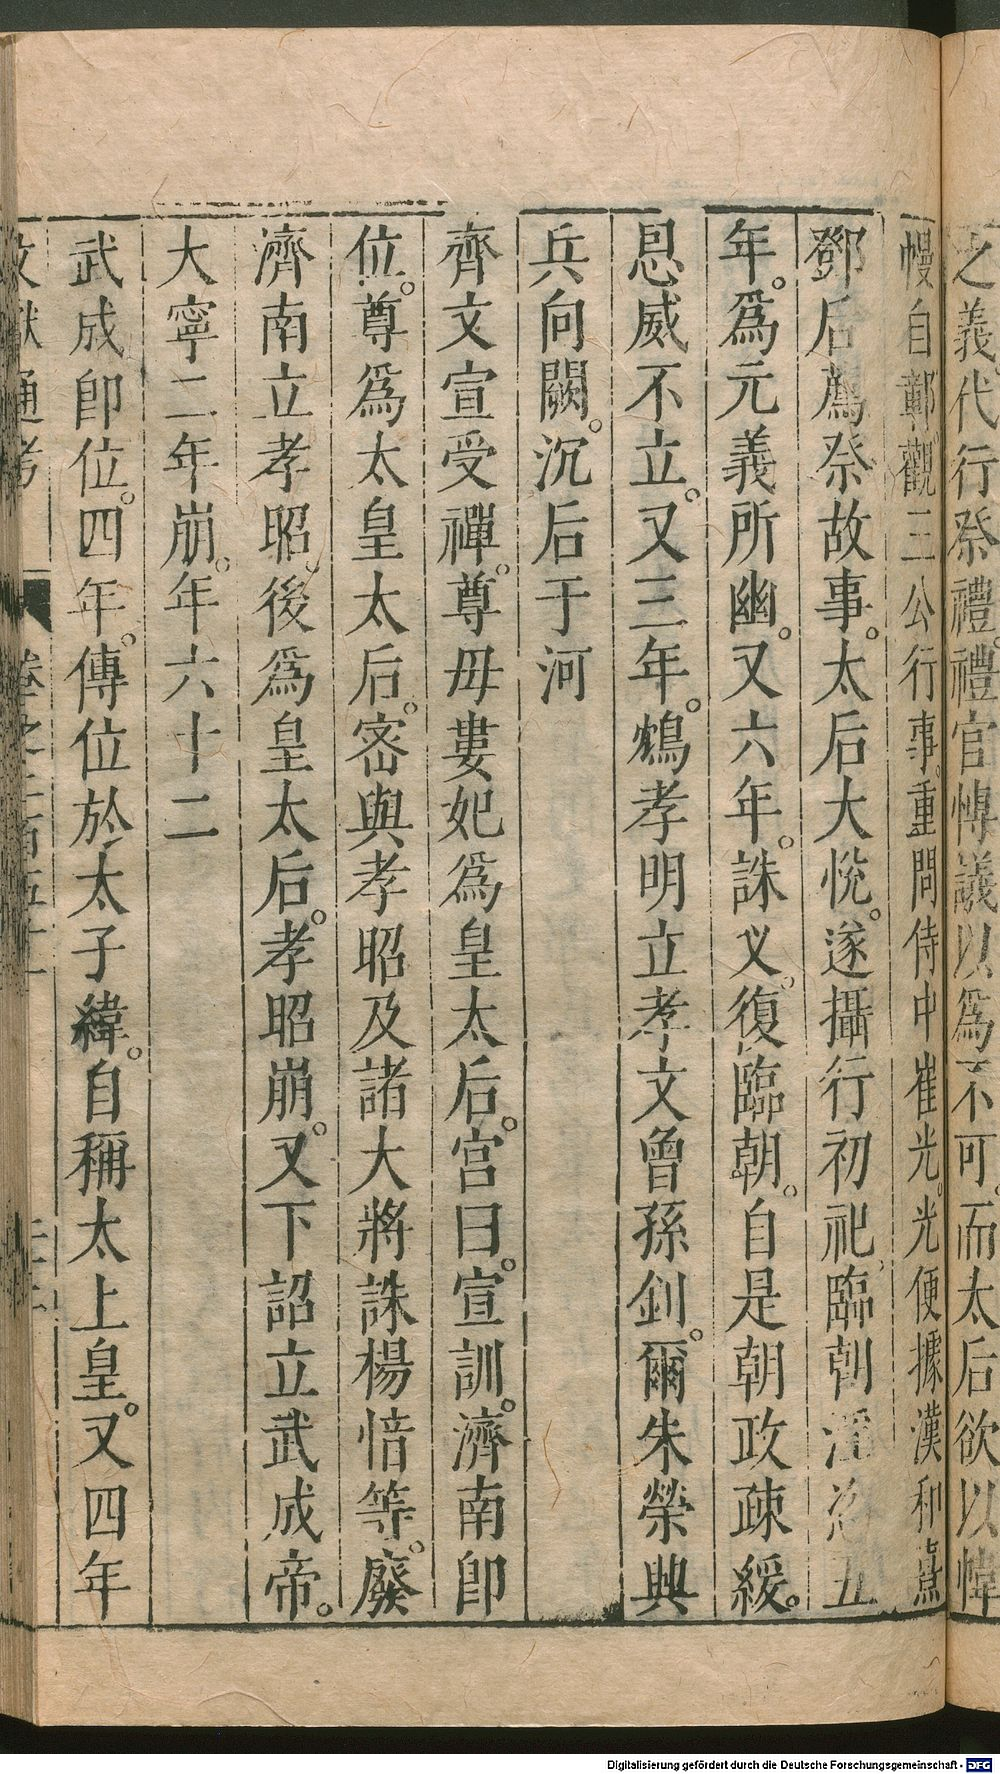 之義代行祭禮禮官博議以爲不可而太后欲以幃
幔自鄣觀三公行事重問侍中崔光光便據漢和熹
鄧后薦祭故事太后大悅遂攝行初祀臨朝淫恣五
年。爲元義所幽。又六年。誅义。復臨朝。自是朝政疎緩。
恩威不立。又三年。鴆孝明立孝文曾孫釗。爾朱榮興
兵向闕。沉后于河
齊文宣受禪。尊母婁妃爲皇太后。宮曰。宣訓。濟南卽
位。尊爲太皇太后。密與孝昭及諸大將誅楊愔等。廢
濟南立孝昭後爲皇太后。孝昭崩。又下詔立武成帝。
大寧二年崩。年六十二
武成卽位。四年。傳位於太子緯。自稱太上皇。又四年
文獻通考 卷之二百五十
Digitalisierung gefördert durch die Deutsche Forschungsgemeinschaft - DFG